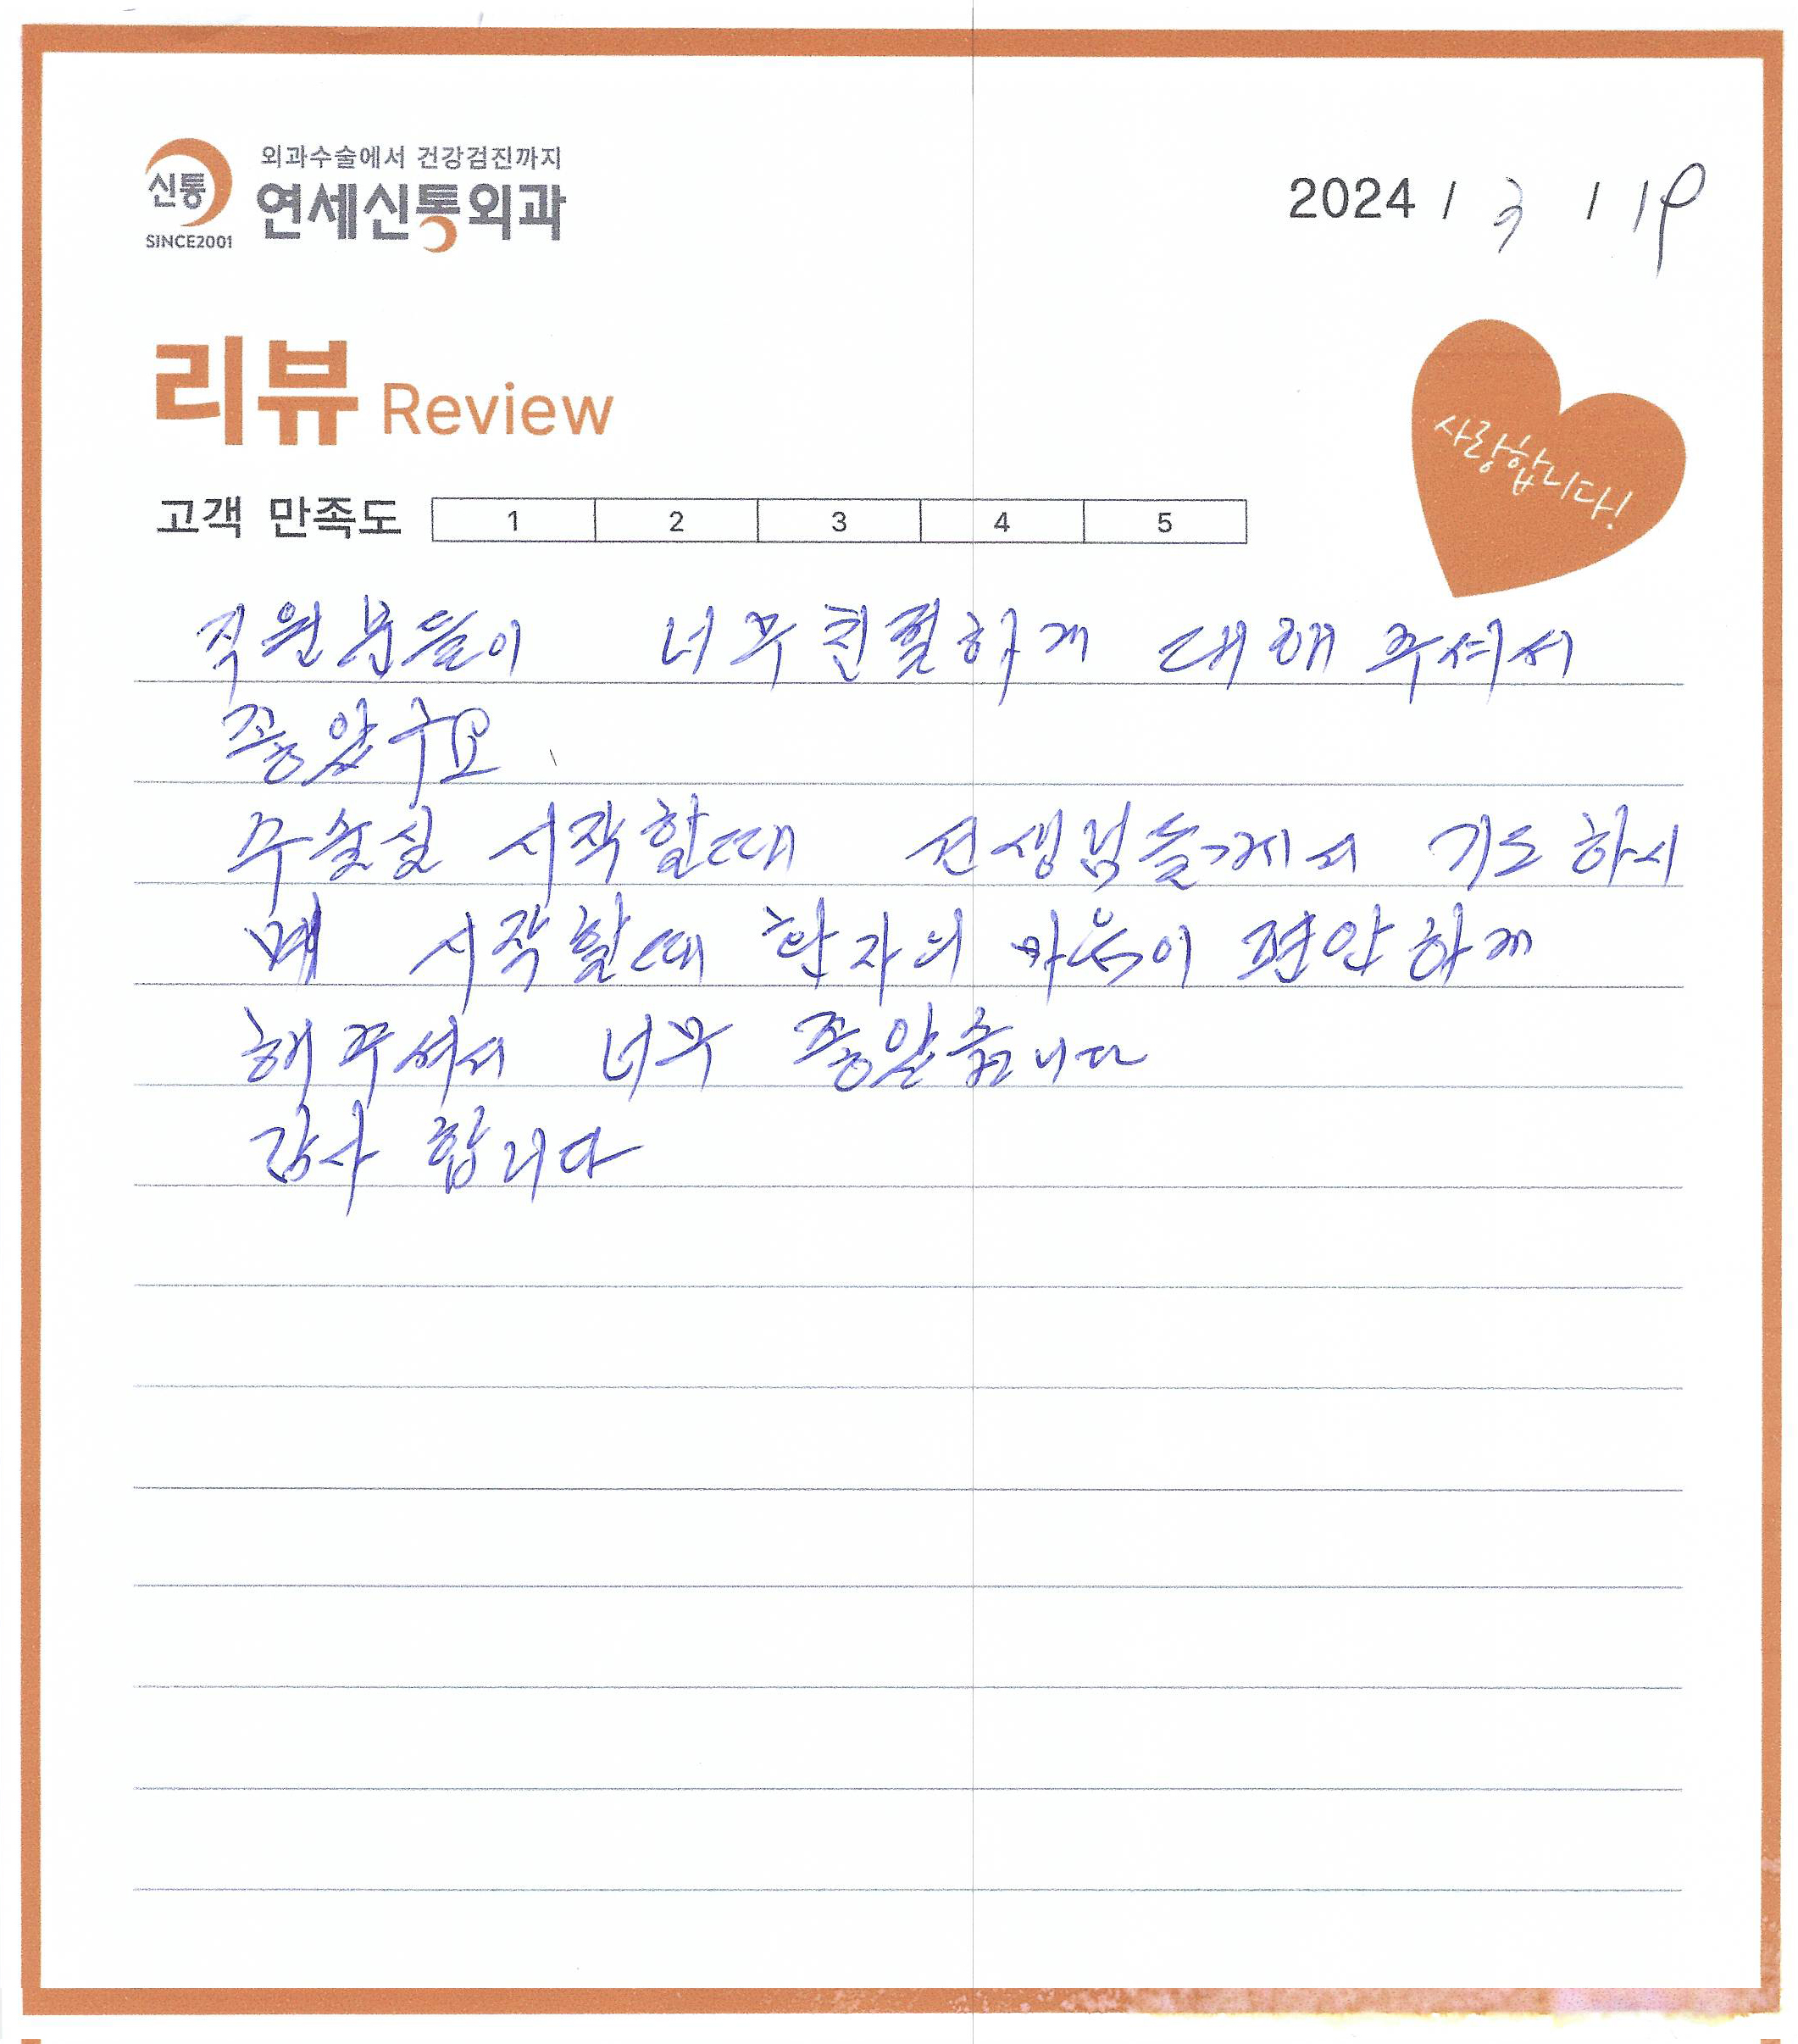 외과수술에서 건강검진까지
신통 연세신통외과
SINCE2001
2024 / 3 / 19
리뷰 Review
사랑합니다!
고객 만족도 1 2 3 4 5
직원분들이 너무 친절하게 대해 주셔서
좋았구요
수술실 시작할때 선생님들께서 기도하시
며 시작할때 환자의 마음이 편안하게
해주셔서 너무 좋았습니다
감사 합니다